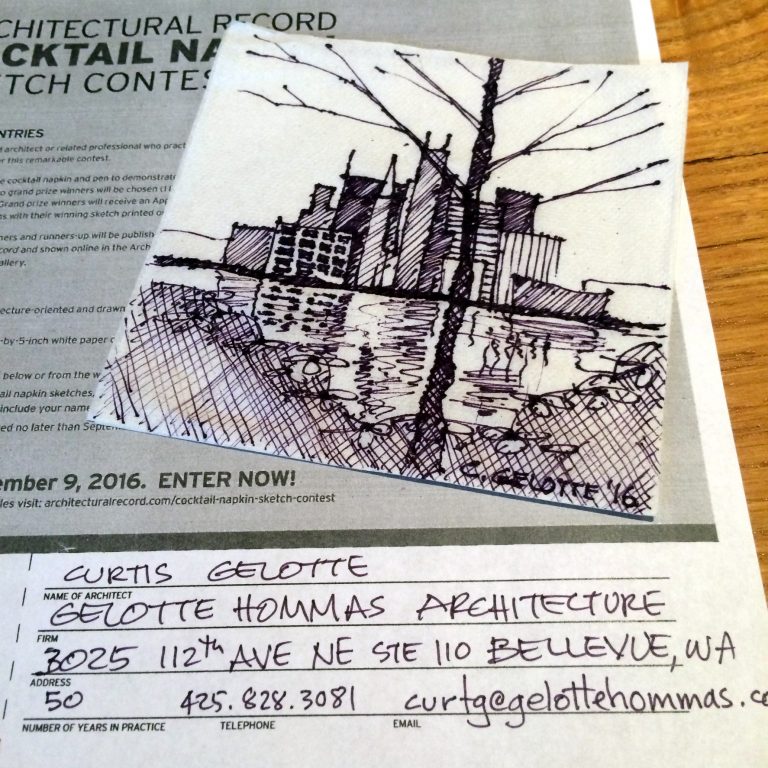 CHITECTURAL RECORD
CKTAIL NA
TCH CONTES
ENTRIES
d architect or related professional who pract
r this remarkable contest.
e cocktail napkin and pen to demonstrate
o grand prize winners will be chosen (1
Grand prize winners will receive an App
s with their winning sketch printed o
ners and runners-up will be publish
cord and shown online in the Arch
allery.
ecture-oriented and drawn
-by-5-inch white paper c
below or from the w
ail napkin sketches,
include your name
ed no later than Septem
ember 9, 2016. ENTER NOW!
les visit: architecturalrecord.com/cocktail-napkin-sketch-contest
C. GELOTTE '16
CURTIS GELOTTE
NAME OF ARCHITECT
GELOTTE HOMMAS ARCHITECTURE
FIRM
3025 112th AVE NE STE 110 BELLEVUE, WA
ADDRESS
50 425.828.3081 curtg@gelottehommas.co
NUMBER OF YEARS IN PRACTICE TELEPHONE EMAIL